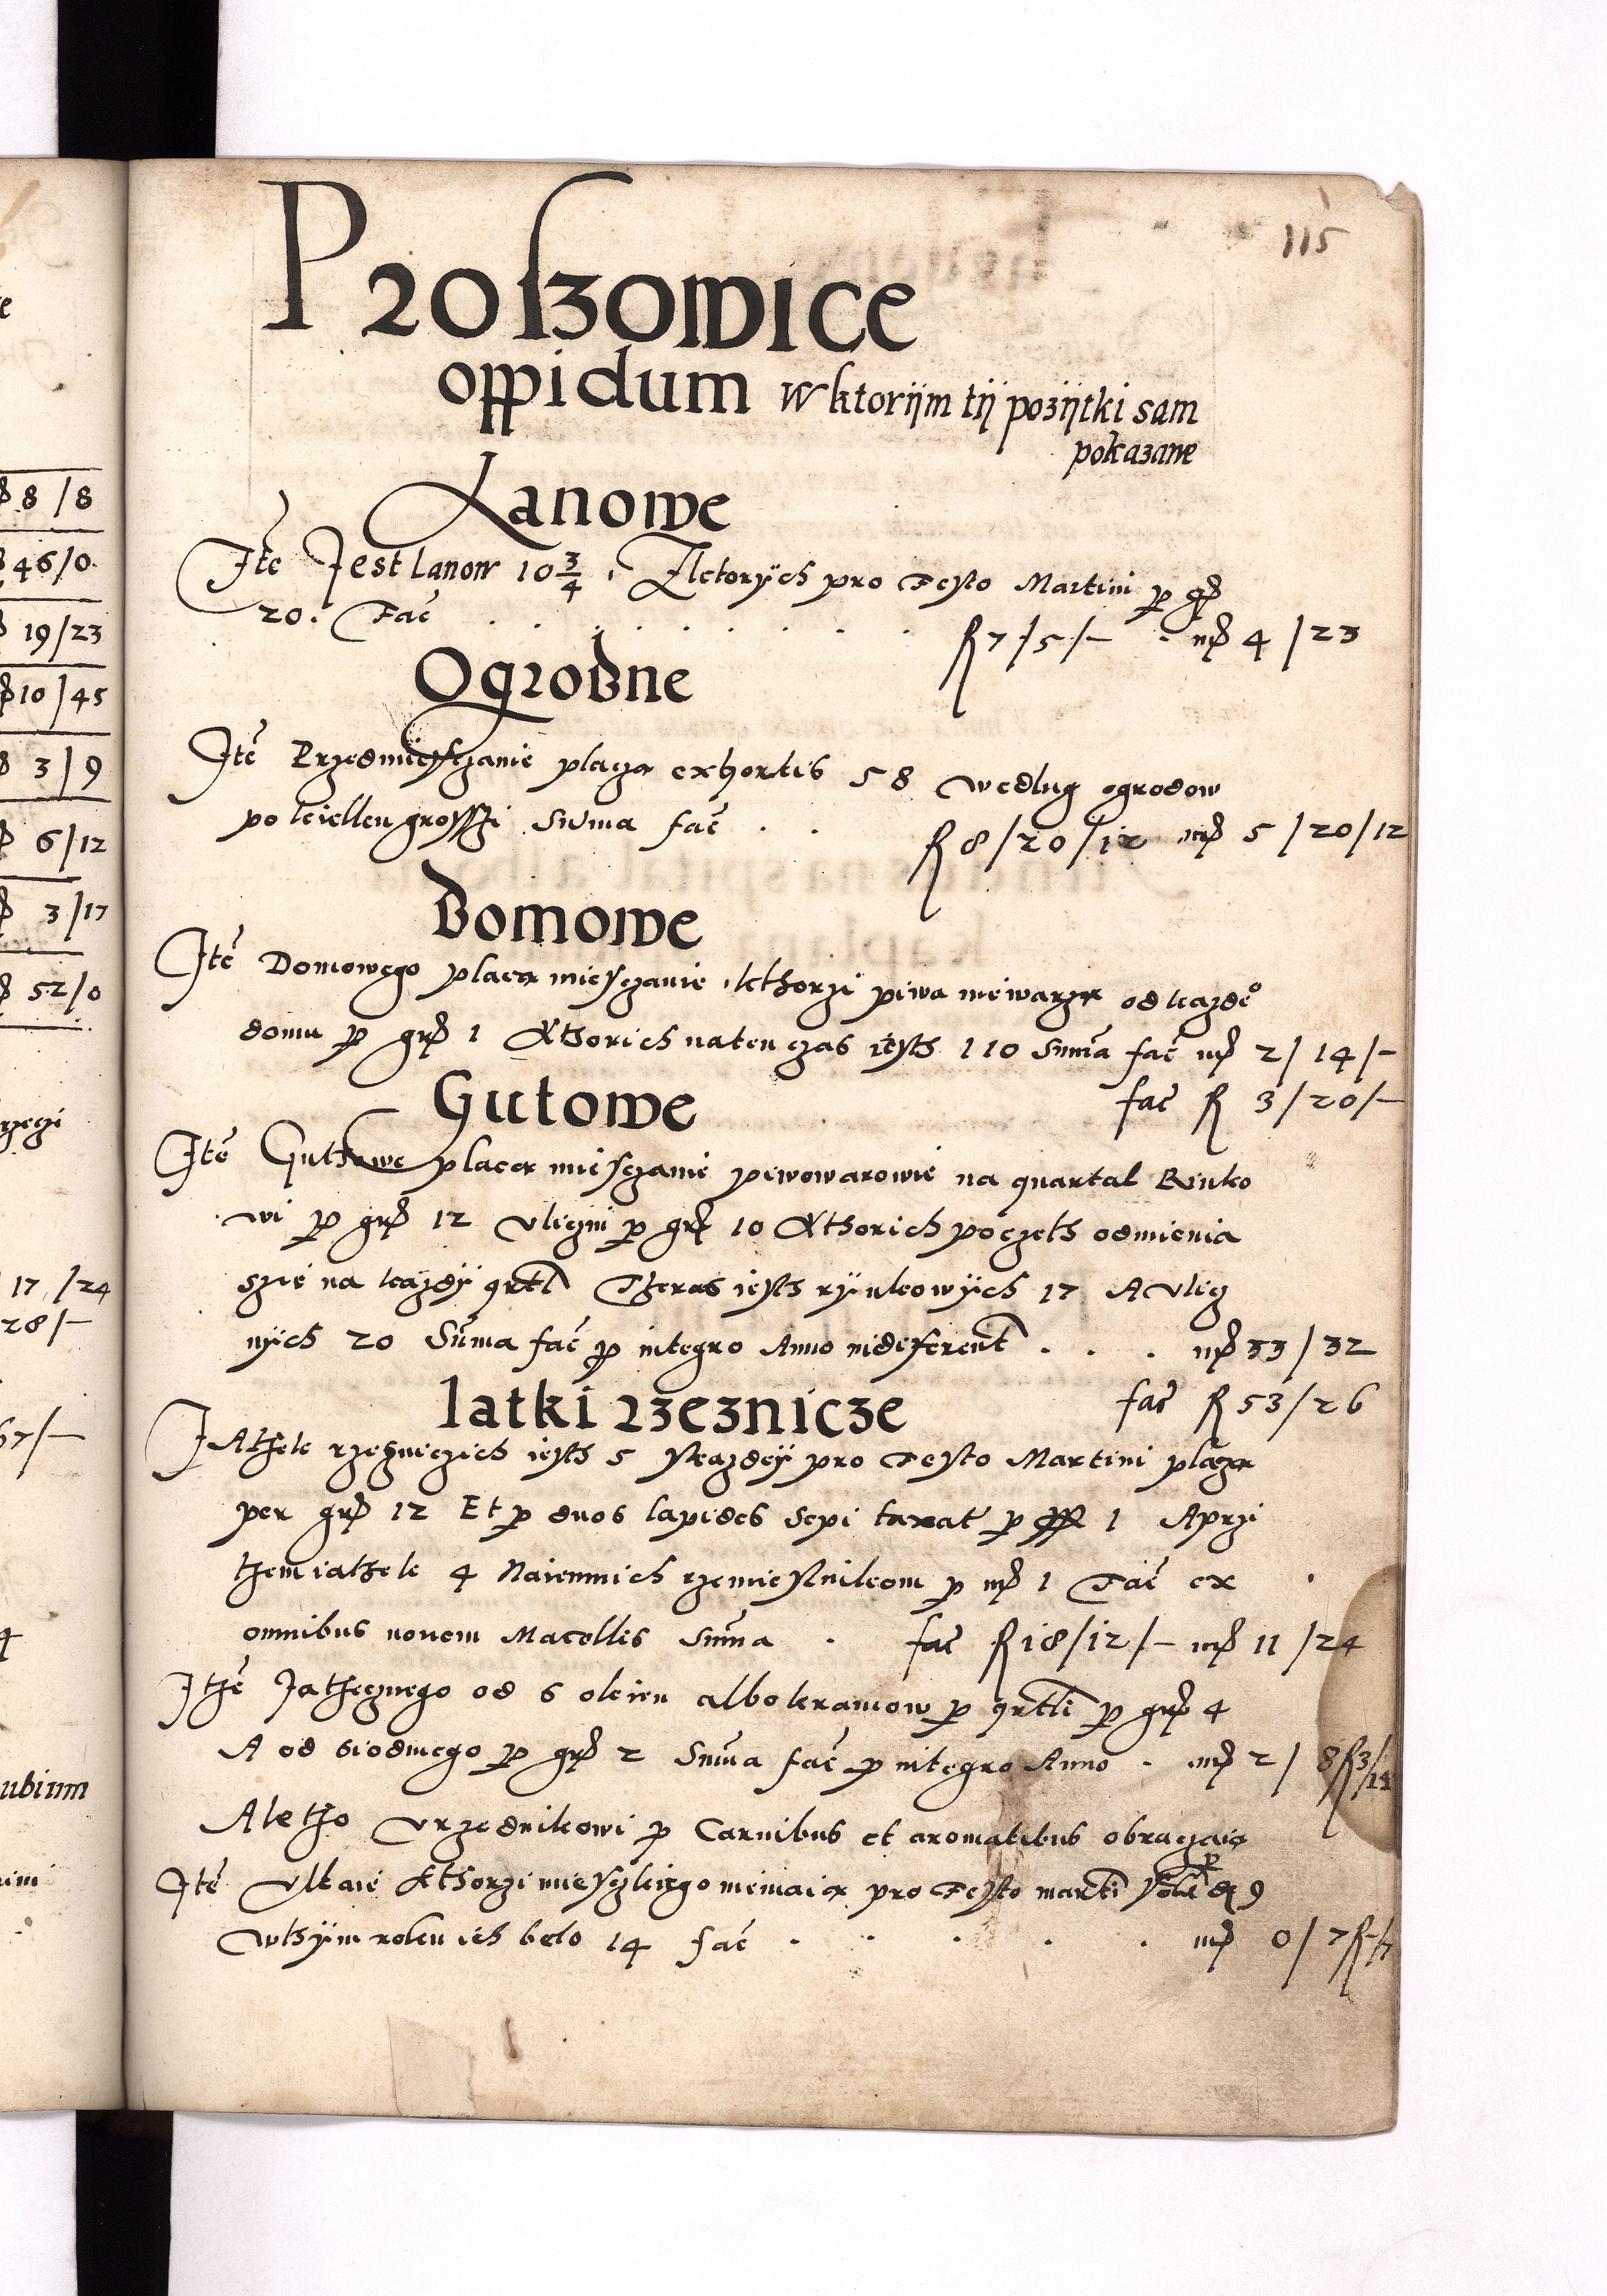 115
Proszowice
oppidum W ktorijm tij pozijtki sam
pokazane
Lanowe
Ite Jest lanow 10 3/4 Zktorych pro Festo Martini p gr
20. Fac . . . . . . . . . R 7/5/– . mr 4/23
Ogrodne
Ite Przedmiesczanie placza ex hortis 58 wedlug ogrodow
po kiellku groszi Suma fac . . R 8/20/12 mr 5/20/12
Domowe
Ite Domowego placza miesczanie kthorzi piwa niewarza od kazdeo
domu p gr 1 Kthorich naten czas iesth 110 Suma fac mr 2/14/–
fac R 3/20/–
Gutowe
Ite Guthowe placza miesczanie piwowarowie na quartal Rinko
wi p gr 12 Uliczni p gr 10 Kthorich poczeth odmienia
szie na kazdy qrtl Theras iesth rynkowych 17 A Ulicz
nych 20 Suma fac p integro Anno indiferent . . . mr 33/32
fac R 53/26
Iatki rzeznicze
Jathek rzezniczich iesth 5 Skazdey pro Festo Martini placza
per gr 12 Et p duos lapides sepi taxat p 1 A przi
them iathek 4 Naiemnich rzemiesnikom p mr 1 Fac ex
omnibus novem Macellis Suma . fac R 18/12/– mr 11/24
Ithe Jathecznego od 6 okien albo kramow p qrtli p gr 4
A od siodmego p gr 2 Suma fac p integro Anno . mr 2/8 R 3/14
A ktho Urzednikowi p Carnibus et aromatibus obraczaia
Ite kthorzi mieiscza niemaia pro Festo marti 9
Wthym roku ich belo 14 fac . . . . . mr 0/7 R –/7
8/8
46/0
19/23
10/45
3/9
6/12
3/17
52/0
17/24
28/–
67/–
4